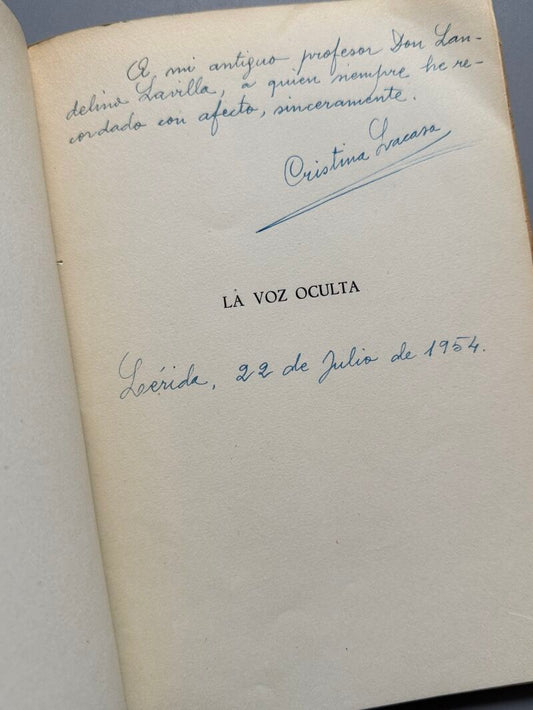 A mi antiguo profesor Don Lan-
delino Lavilla, a quien siempre he re-
cordado con afecto, sinceramente.
Cristina Lacasa
LA VOZ OCULTA
Lérida, 22 de Julio de 1954.